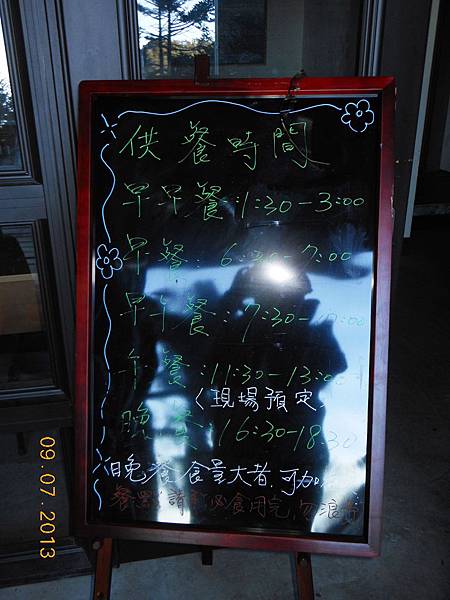 供餐時間
早早餐:1:30-3:00
早餐:6:30-7:00
早午餐:7:30-10:00
午餐:11:30-13:00
(現場預定
晚餐:16:30-18:30
晚餐食量大者.可加
餐點請務必食用完,勿浪費
09.07.2013